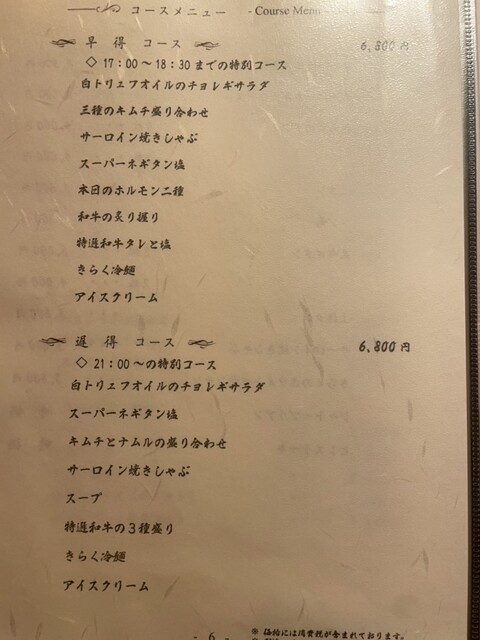 コースメニュー - Course Menu -
早得 コース 6,800円
◇17:00〜18:30までの特別コース
白トリュフオイルのチョレギサラダ
三種のキムチ盛り合わせ
サーロイン焼きしゃぶ
スーパーネギタン塩
本日のホルモン二種
和牛の炙り握り
特選和牛タレと塩
きらく冷麺
アイスクリーム
遅得 コース 6,800円
◇21:00〜の特別コース
白トリュフオイルのチョレギサラダ
スーパーネギタン塩
キムチとナムルの盛り合わせ
サーロイン焼きしゃぶ
スープ
特選和牛の3種盛り
きらく冷麺
アイスクリーム
- 6 -
※ 価格には消費税が含まれております。